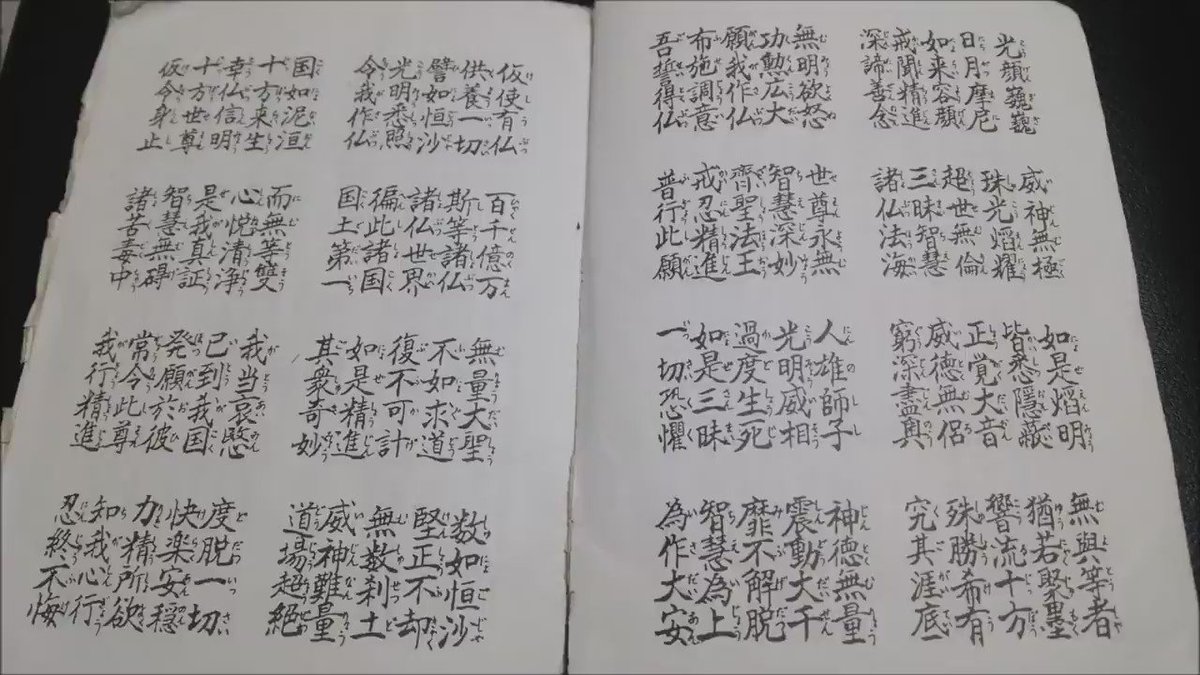 光顔巍巍 威神無極 如是焰明 無與等者
日月摩尼 珠光焰耀 皆悉隱蔽 猶若聚墨
如来容顔 超世無倫 正覚大音 響流十方
戒聞精進 三昧智慧 威徳無侶 殊勝希有
深諦善念 諸仏法海 窮深盡奥 究其涯底
無明欲怒 世尊永無 人雄師子 神徳無量
功勲広大 智慧深妙 光明威相 震動大千
願我作仏 齊聖法王 過度生死 靡不解脱
布施調意 戒忍精進 如是三昧 智慧為上
吾誓得仏 普行此願 一切恐懼 為作大安
仮使有仏 百千億万 無量大聖 数如恒沙
供養一切 斯等諸仏 不如求道 堅正不却
譬如恒沙 諸仏世界 復不可計 無数刹土
光明悉照 徧此諸国 如是精進 威神難量
令我作仏 国土第一 其衆奇妙 道場超絶
国如泥洹 而無等雙 我当哀愍 度脱一切
十方来生 心悦清浄 已到我国 快楽安穏
幸仏信明 是我真証 発願於彼 力精所欲
十方世尊 智慧無碍 常令此尊 知我心行
仮令身止 諸苦毒中 我行精進 忍終不悔